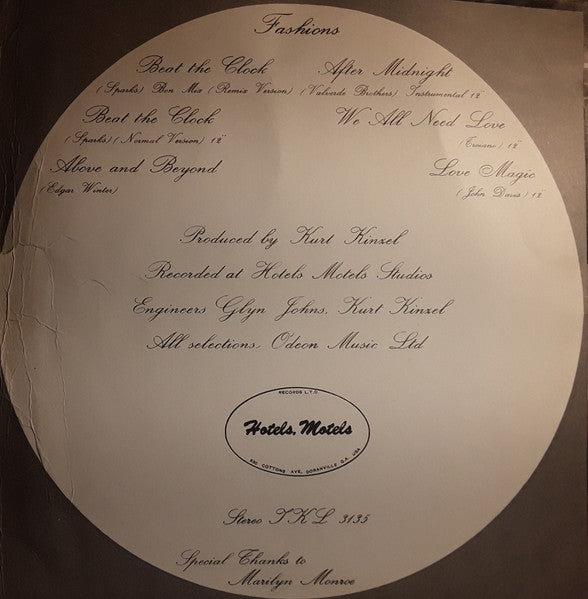 Fashions
Beat the Clock
(Sparks) Ben Mix (Remix Version)
Beat the Clock
(Sparks) (Normal Version) 12"
Above and Beyond
(Edgar Winter)
After Midnight
(Valverde Brothers) Instrumental 12"
We All Need Love
(Troiano) 12"
Love Magic
(John Davis) 12"
Produced by Kurt Kinzel
Recorded at Hotels Motels Studios
Engineers Glyn Johns, Kurt Kinzel
All selections, Odeon Music Ltd
RECORDS L.T.D.
Hotels, Motels
COTTONS AVE, DORAVILLE G.A. USA
Stereo TKL 3135
Special Thanks to
Marilyn Monroe